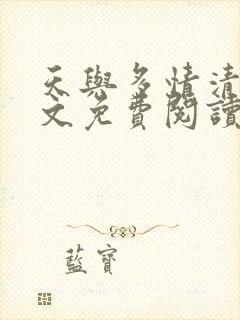 天與多情清
文免費閱讀
藍寶